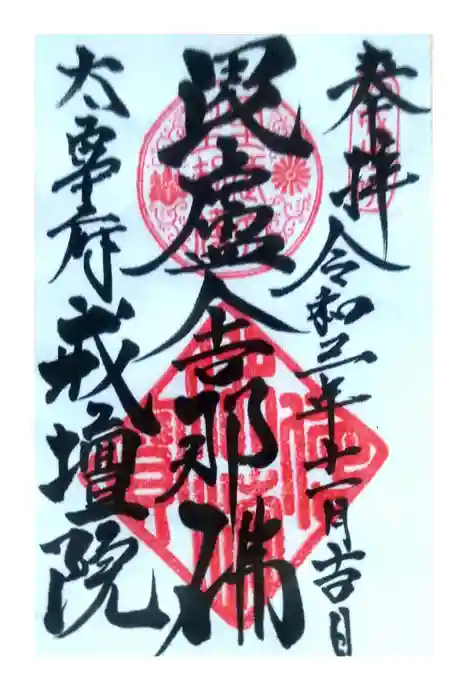 奉拝 令和三年十一月吉日
毘盧舎那佛
太宰府 戒壇院